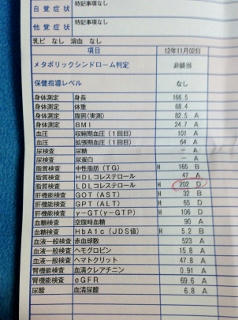 自覚症状 特記事項なし
他覚症状 特記事項なし
乳ビ なし 溶血 なし
項目 12年11月02日
メタボリックシンドローム判定 非該当
保健指導レベル なし
身体測定 身長 166.5
身体測定 体重 68.4
身体測定 腹囲(実測) 82.5 A
身体測定 BMI 24.7 A
血圧 収縮期血圧(1回目) 101 A
血圧 拡張期血圧(1回目) 64 A
尿検査 尿糖 - A
尿検査 尿蛋白 - A
脂質検査 中性脂肪(TG) H 165 B
脂質検査 HDLコレステロール 47 A
脂質検査 LDLコレステロール H 202 D
肝機能検査 GOT(AST) H 32 B
肝機能検査 GPT(ALT) H 65 D
肝機能検査 γ-GT(γ-GTP) H 106 D
血糖検査 空腹時血糖 90 A
血糖検査 HbA1c(JDS値) H 5.2 B
血液一般検査 赤血球数 523 A
血液一般検査 ヘモグロビン 15.8 A
血液一般検査 ヘマトクリット 47.8 A
腎機能検査 血清クレアチニン 0.91 A
腎機能検査 eGFR 69.6 A
尿酸 血清尿酸 6.8 A